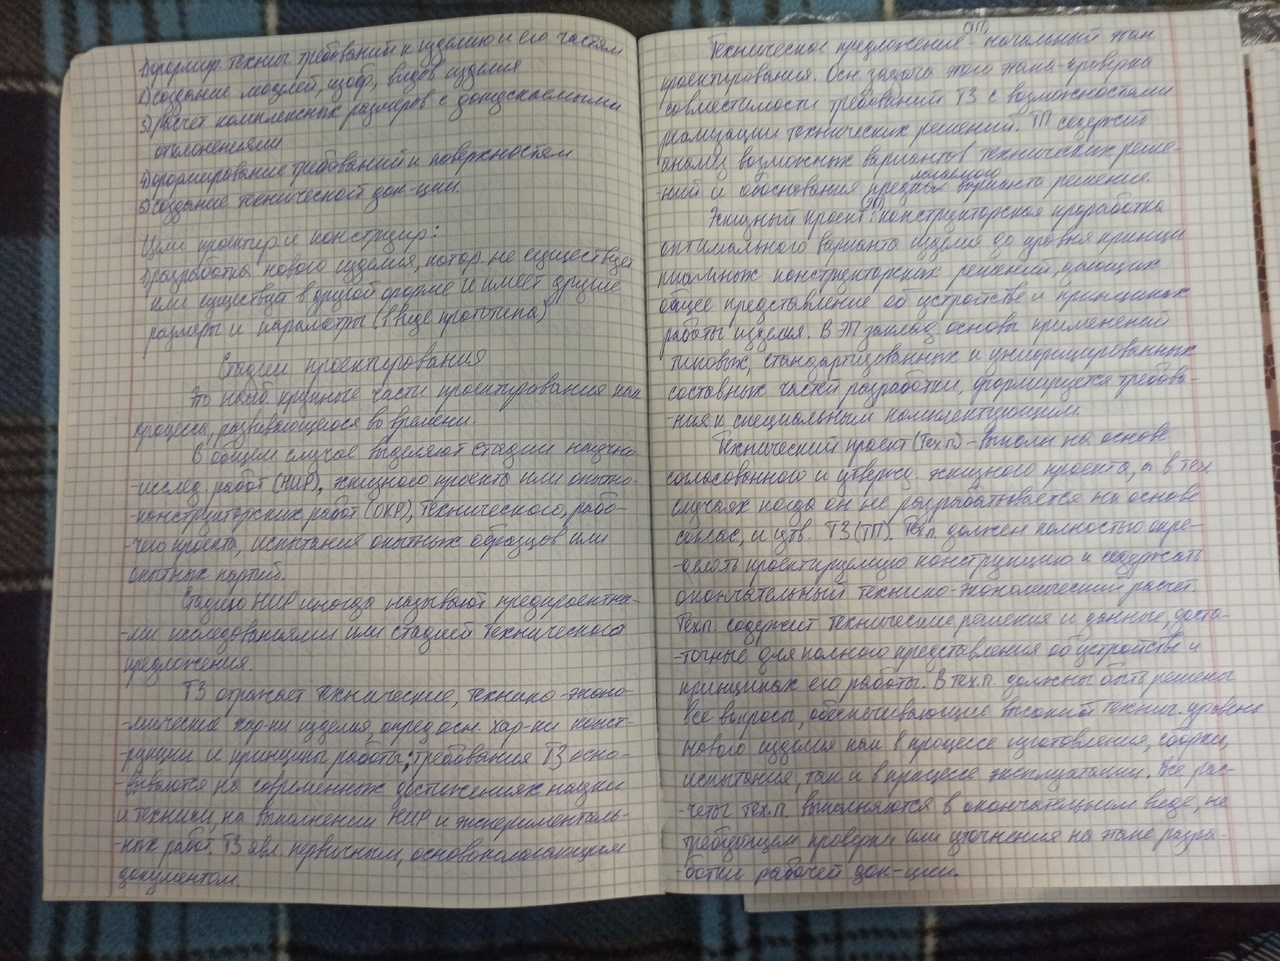 1) формир. технич. требований к изделию и его частям
2) создание моделей, изобр., видов изделия
3) расчет комплексных размеров с допускаемыми
отклонениями
4) формирование требований к поверхностям
5) создание технической док-ции.
Цели проектир. и констр-ир:
1) разработка нового изделия, котор. не существует
или существует в другой форме и имеет другие
размеры и параметры (в виде прототипа)
Стадии проектирования
Это наиб. крупные части проектирования как
процесса, развивающегося во времени.
В общем случае выделяют стадии научно
-исслед. работ (НИР), эскизного проекта или опытно-
-конструкторских работ (ОКР), технического, рабо-
-чего проекта, испытания опытных образцов или
опытных партий.
Стадию НИР иногда называют предпроектны-
-ми исследованиями или стадией технического
предложения.
ТЗ отражает технические, технико-эконо-
-мические хар-ки изделия, опред. осн. хар-ки конст-
-рукции и принципы работы; требования ТЗ осно-
-вываются на современных достижениях науки
и техники, на выполнении НИР и эксперименталь-
-ных работ. ТЗ явл. первичным, основополагающим
документом.
Техническое предложение (ТП) - начальный этап
проектирования. Осн. задача этого этапа - проверка
совместимости требований ТЗ с возможностями
реализации технических решений. ТП содержит
анализ возможных вариантов технических реше-
-ний и обоснования предлагаемого варианта решения.
Эскизный проект (ЭП): конструкторская проработка
оптимального варианта изделия до уровня принци
пиальных конструкторских решений, дающих
общее представление об устройстве и принципах
работы изделия. В ЭП заклад. основы применений
типовых, стандартизованных и унифицированных
составных частей разработки, формируется требова-
-ния к специальным комплектующим.
Технический проект (Тех.п.) - выполн на основе
согласованного и утвержд. эскизного проекта, а в тех
случаях когда он не разрабатывается на основе
соглас. и утв. ТЗ (ТП). Тех.п. должен полностью опре-
-делять проектируемую конструкцию и содержать
окончательный технико-экономический расчет.
Тех.п. содержит технические решения и данные, доста-
-точные для полного представления об устройстве и
принципах его работы. В тех.п. должны быть решены
все вопросы, обеспечивающие высокий технич. уровень
нового изделия как в процессе изготовления, сборки,
испытания, так и в процессе эксплуатации. Все рас-
-четы тех.п. выполняются в окончательном виде, не
требующем проверки или уточнения на этапе разра-
-ботки рабочей док-ции.